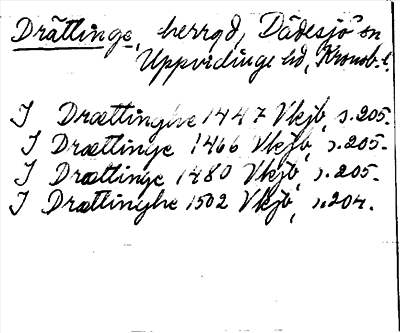 Drättinge, herrgd, Dädesjö sn
Uppvidinge hd, Kronob. l.
I Drættinghe 1447 Vkjb, s. 205.
I Drættinge 1466 Vkjb, s. 205.
I Drættinge 1480 Vkjb, s. 205.
I Drættinghe 1502 Vkjb, s. 204.